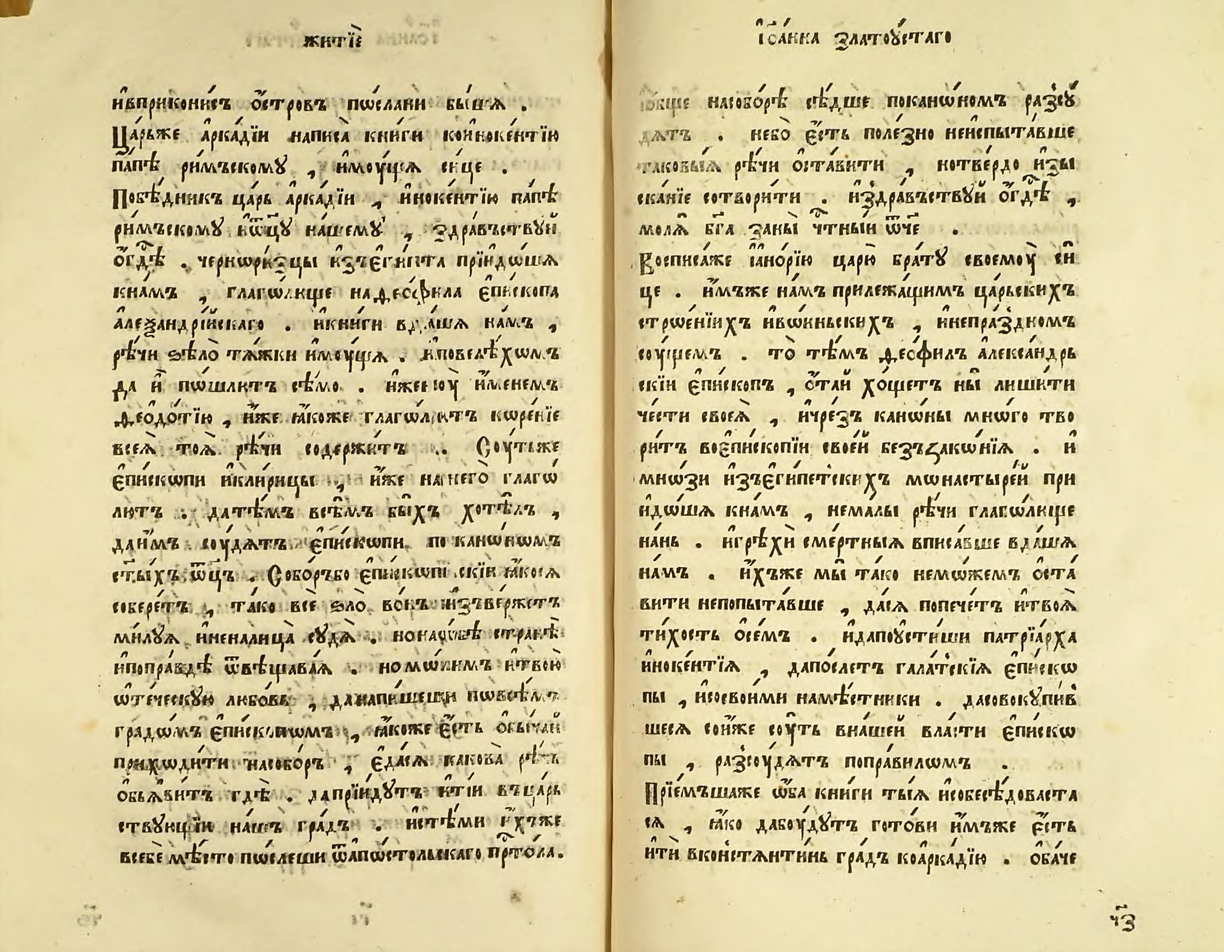 житїѐ
ивприконисъ ѻ҆стровъ пѡслани бы́ша .
Ца́рьже арка́дїи написа̀ кни́ги коинокентїю
па́пѣ ри́мъскому , и҆мꙋ́щꙗ си́це .
Побѣ́дникъ ца́рь арка́дїи , и҆ноке́нтїю па́пѣ
ри́мъскому иѿц꙽у на́шему , здра́въствуй
ѻ҆гдⷭ҇ѣ . черноризцы изъє҆ги́пта прїидо́шꙗ
кна́мъ , глаго́лище на ѳео́фила є҆пи́скопа
алеѯандрі́йскаго . икни́ги вда́шꙗ на́мъ ,
рѣ́чи ѕѣло̀ тꙗ́жки и҆мꙋ́щꙗ . и҆повелѣ́хѡмъ
да й пѡшлю́тъ сѣ́мо . и҆же
ѳео҆до́тїю , и҆́же ꙗ҆́коже глаго́лютъ ко́ренїе
всеꙗ̀ тоꙗ̀ рѣ́чи содержи́тъ .. Сꙋ́тьже
є҆пи́скопи и҆кли́рицы , и҆́же на него̀ глаго́
лютъ . датѣ́мъ всѣ́мъ бы́хъ хотѣ́лъ ,
даи́мъ сꙋ́дꙗтъ є҆пи́скопи по кано́нѡмъ
ст҃ы́хъ ѿц꙽ъ . Собо́ръбо є҆пи́скопскїи ꙗ҆́косꙗ
собере́тъ , та́ко всѐ ѕло̀ во́нъ изъве́ржетъ
ми́луꙗ и҆неналица̀ судꙗ̀ .
ипопра́вдѣ ѿвѣщава́ꙗ . номо́лимъ и҆твою̀
ѻ҆те́ческую любо́вь , данапи́шеши пѡвсѣ́мъ
гра́дѡмъ є҆пи́скопѡмъ , ꙗ҆́коже є҆́сть ѻ҆бы́чай
приходи́ти насобо́ръ , є҆да́сꙗ какова̀ рѣ́чь
ѻ҆бъꙗви́тъ гдѣ̀ . дапрїиду́тъ и҆тїи въца́рь
ствующїи на́шъ гра́дъ . и҆стѣ́ми и҆́хъже
всебѐ мѣ́сто пѡсле́ши ѿапо́стольскаго прⷭ҇то́ла.
і҆ѡа́нна златоꙋ́стаго
ѻ҆́бще насобо́рѣ сѣ́дше покано́номъ разсꙋ́
дꙗтъ . небо̀ є҆́сть поле́зно неиспыта́вше
таковы́ꙗ рѣ́чи ѻ҆ста́вити , нотве́рдо изы
ска́нїе сотвори́ти . и҆здра́въствуй ѻ҆гдⷭ҇ѣ ,
молꙗ̀ бг҃а заны̀ чⷭ҇тны́и ѿч꙽е .
Восписа́же і҆ано́рїю царю̀ бра́ту своемꙋ̀ си́
це . и҆́мъже на́мъ прилежа́щимъ ца́рьскихъ
строе́нїихъ ивои́ньскихъ , и҆непра́здномъ
сꙋ́щемъ . то̀ тѣ́мъ ѳео́филъ алекса́ндрь
скїи є҆пи́скопъ , ѻ҆та́й хо́щетъ ны̀ лиши́ти
че́сти своеꙗ̀ , и҆чре́зъ кано́ны мно́го тво
ри́тъ воє҆писко́пїи свое́й безъзако́нїꙗ . и҆
мно́зи изъє҆ги́петскихъ монасты́рей при
идо́шꙗ кна́мъ , нема́лы рѣ́чи глаго́лище
на́нь . и҆грѣхѝ сме́ртныꙗ вписа́вше вда́шꙗ
на́мъ . и҆́хъже мы̀ та́ко немо́жемъ ѻ҆ста́
вити непопыта́вше , да́сꙗ попече́тъ и҆твоꙗ̀
ти́хость ѻ҆се́мъ . и҆дапꙋ́стиши патрїа́рха
иноке́нтїꙗ , дапо́слетъ гала́тскїꙗ є҆пи́ско
пы , и҆сосвои́ми намѣ́стники . дасовокупи́в
шесꙗ сои́же сꙋ́ть вна́шей вла́сти є҆пи́ско
пы , разсꙋ́дꙗтъ попра́виломъ .
Прїе́мъшаже ѻ҆́ба кни́ги ты́ꙗ и҆собесѣ́доваста
сꙗ , ꙗ҆́ко дабꙋ́дутъ гото́ви и҆́мъже є҆́сть
итѝ вконстꙗнти́нь гра́дъ коарка́дїю . ѻ҆ба́че
чз